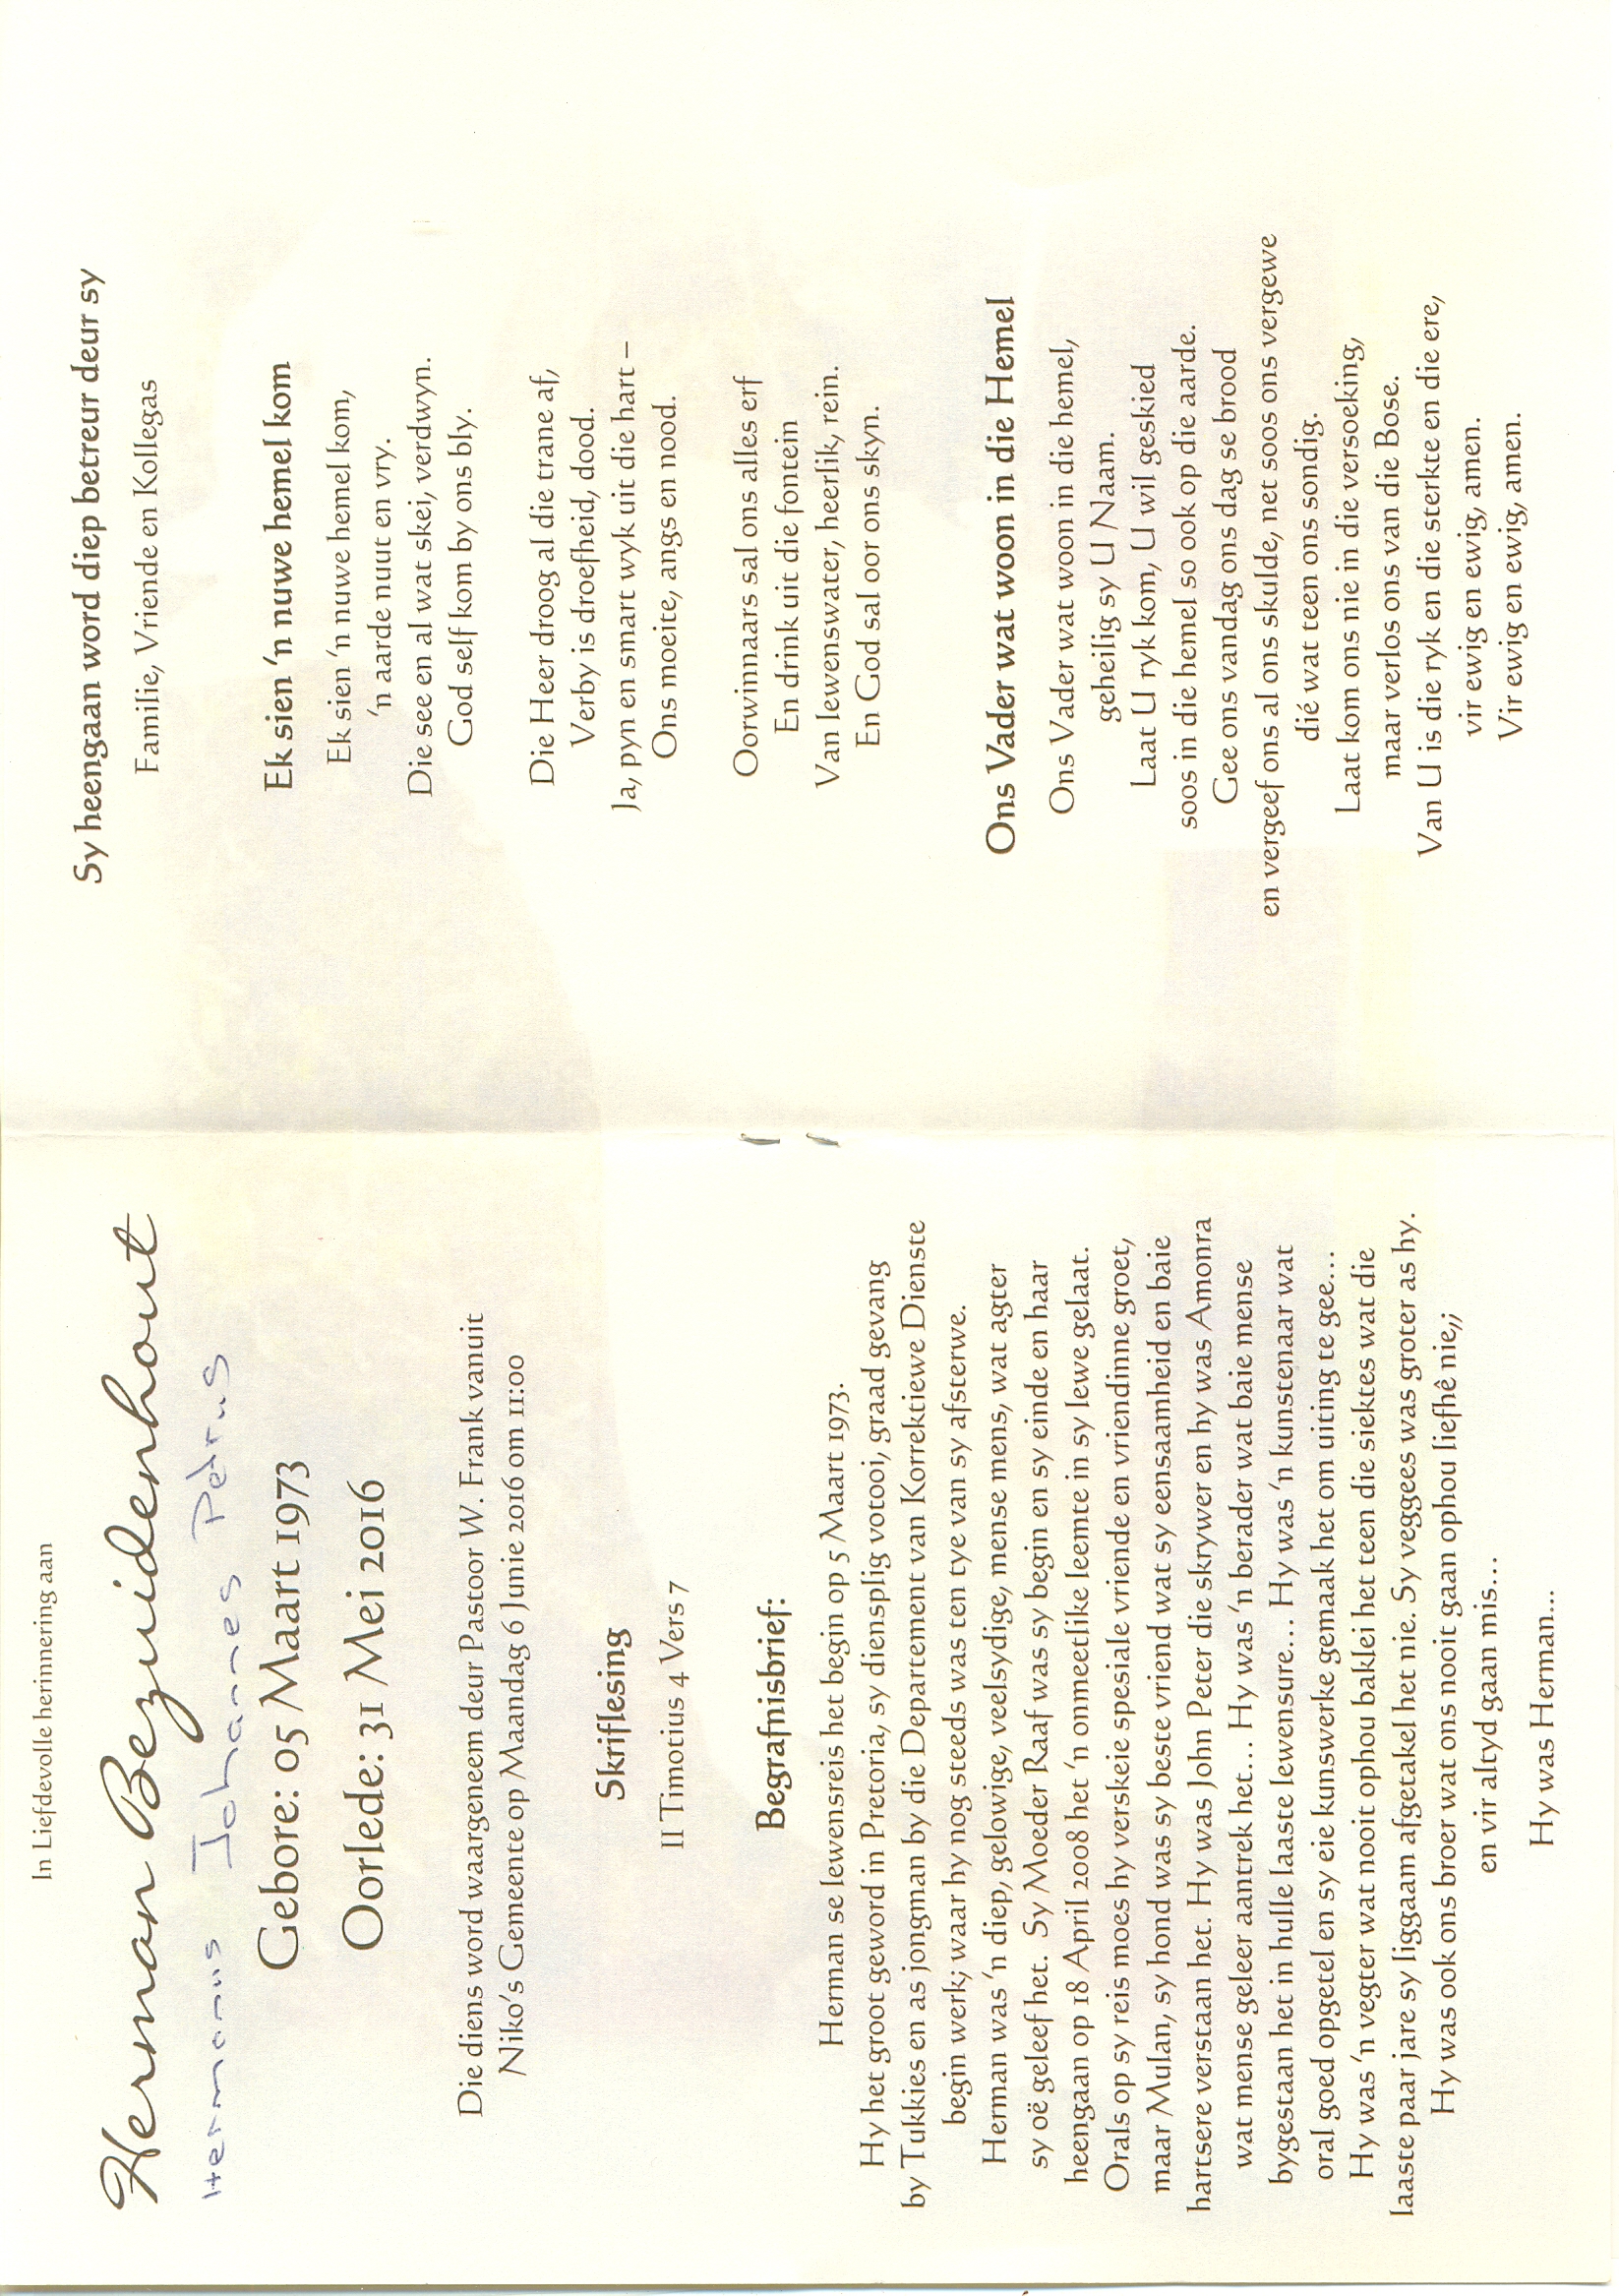 In Liefdevolle herinnering aan
Herman Bezuidenhout
Hermanus Johannes Petrus
Gebore: 05 Maart 1973
Oorlede: 31 Mei 2016
Die diens word waargeneem deur Pastoor W. Frank vanuit
Niko's Gemeente op Maandag 6 Junie 2016 om 11:00
Skriflesing
II Timotius 4 Vers 7
Begrafnisbrief:
Herman se lewensreis het begin op 5 Maart 1973.
Hy het groot geword in Pretoria, sy diensplig votooi, graad gevang
by Tukkies en as jongman by die Departement van Korrektiewe Dienste
begin werk; waar hy nog steeds was ten tye van sy afsterwe.
Herman was 'n diep, gelowige, veelsydige, mense mens, wat agter
sy oë geleef het. Sy Moeder Raaf was sy begin en sy einde en haar
heengaan op 18 April 2008 het 'n onmeetlike leemte in sy lewe gelaat.
Orals op sy reis moes hy verskeie spesiale vriende en vriendinne groet,
maar Mulan, sy hond was sy beste vriend wat sy eensaamheid en baie
hartsere verstaan het. Hy was John Peter die skrywer en hy was Amonra
wat mense geleer aantrek het… Hy was 'n berader wat baie mense
bygestaan het in hulle laaste lewensure… Hy was 'n kunstenaar wat
oral goed opgetel en sy eie kunswerke gemaak het om uiting te gee…
Hy was 'n vegter wat nooit ophou baklei het teen die siektes wat die
laaste paar jare sy liggaam afgetakel het nie. Sy veggees was groter as hy.
Hy was ook ons broer wat ons nooit gaan ophou liefhê nie,,
en vir altyd gaan mis…
Hy was Herman…
Sy heengaan word diep betreur deur sy
Familie, Vriende en Kollegas
Ek sien 'n nuwe hemel kom
Ek sien 'n nuwe hemel kom,
'n aarde nuut en vry.
Die see en al wat skei, verdwyn.
God self kom by ons bly.
Die Heer droog al die trane af,
Verby is droefheid, dood.
Ja, pyn en smart wyk uit die hart –
Ons moeite, angs en nood.
Oorwinnaars sal ons alles erf
En drink uit die fontein
Van lewenswater, heerlik, rein.
En God sal oor ons skyn.
Ons Vader wat woon in die Hemel
Ons Vader wat woon in die hemel,
geheilig sy U Naam.
Laat U ryk kom, U wil geskied
soos in die hemel so ook op die aarde.
Gee ons vandag ons dag se brood
en vergeef ons al ons skulde, net soos ons vergewe
dié wat teen ons sondig.
Laat kom ons nie in die versoeking,
maar verlos ons van die Bose.
Van U is die ryk en die sterkte en die ere,
vir ewig en ewig, amen.
Vir ewig en ewig, amen.